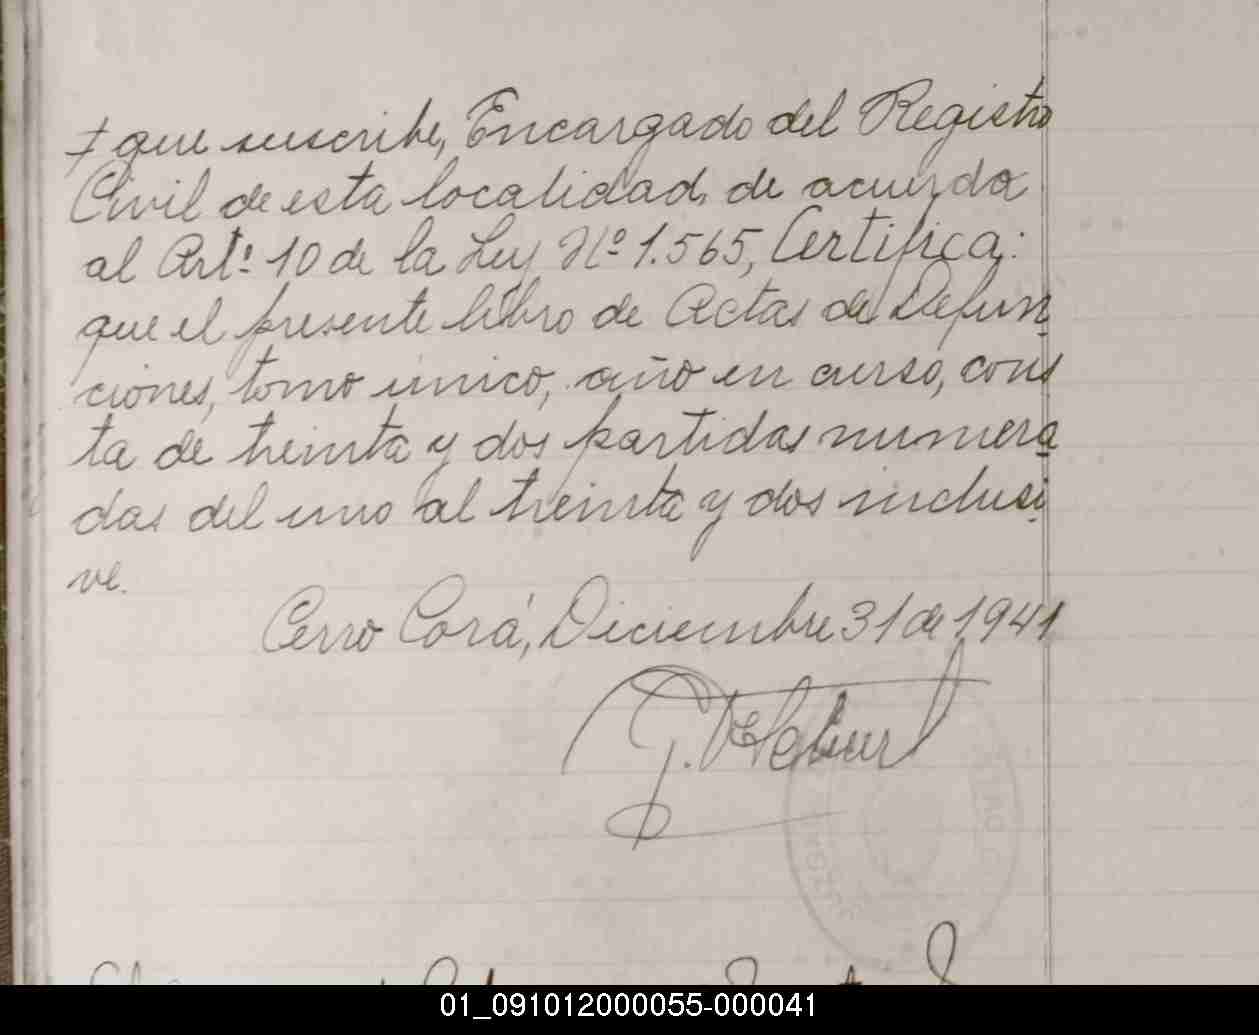 que suscribe, Encargado del Registro
Civil de esta localidad, de acuerdo
al Art.º 10 de la Ley Nº 1.565, Certifica:
que el presente libro de Actas de Defun
ciones, tomo único, año en curso, cons
ta de treinta y dos partidas numera
das del uno al treinta y dos inclusi
ve.
Cerro Corá, Diciembre 31 de 1941
01_091012000055-000041